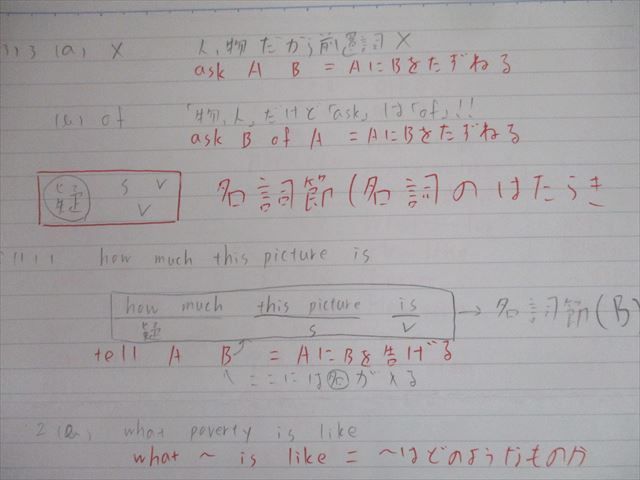 3 (a) X 人,物だから前置詞X
ask A B = AにBをたずねる
of 「物,人」だけど「ask」は「of」!!
ask B of A = AにBをたずねる
疑 S V 名詞節(名詞のはたらき
V
how much this picture is
how much this picture is → 名詞節(B)
疑 S V
tell A B = AにBを告げる
ここには名が入る
2 what poverty is like
what ~ is like = ~はどのようなものか